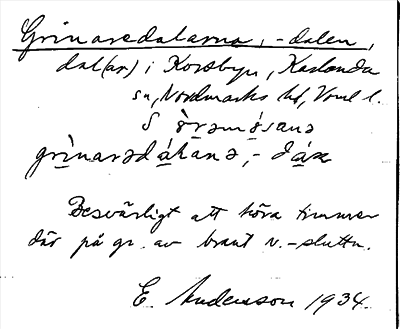 Grinaredalarna, -dalen,
dal(ar) i Korsbyn, Karlanda
sn, Nordmarks hd, Vrml l.
S
grìnarədálanə, -dáʟ
Besvärligt att köra timmer
där på gr. av brant v.-sluttn.
E. Andersson 1934.